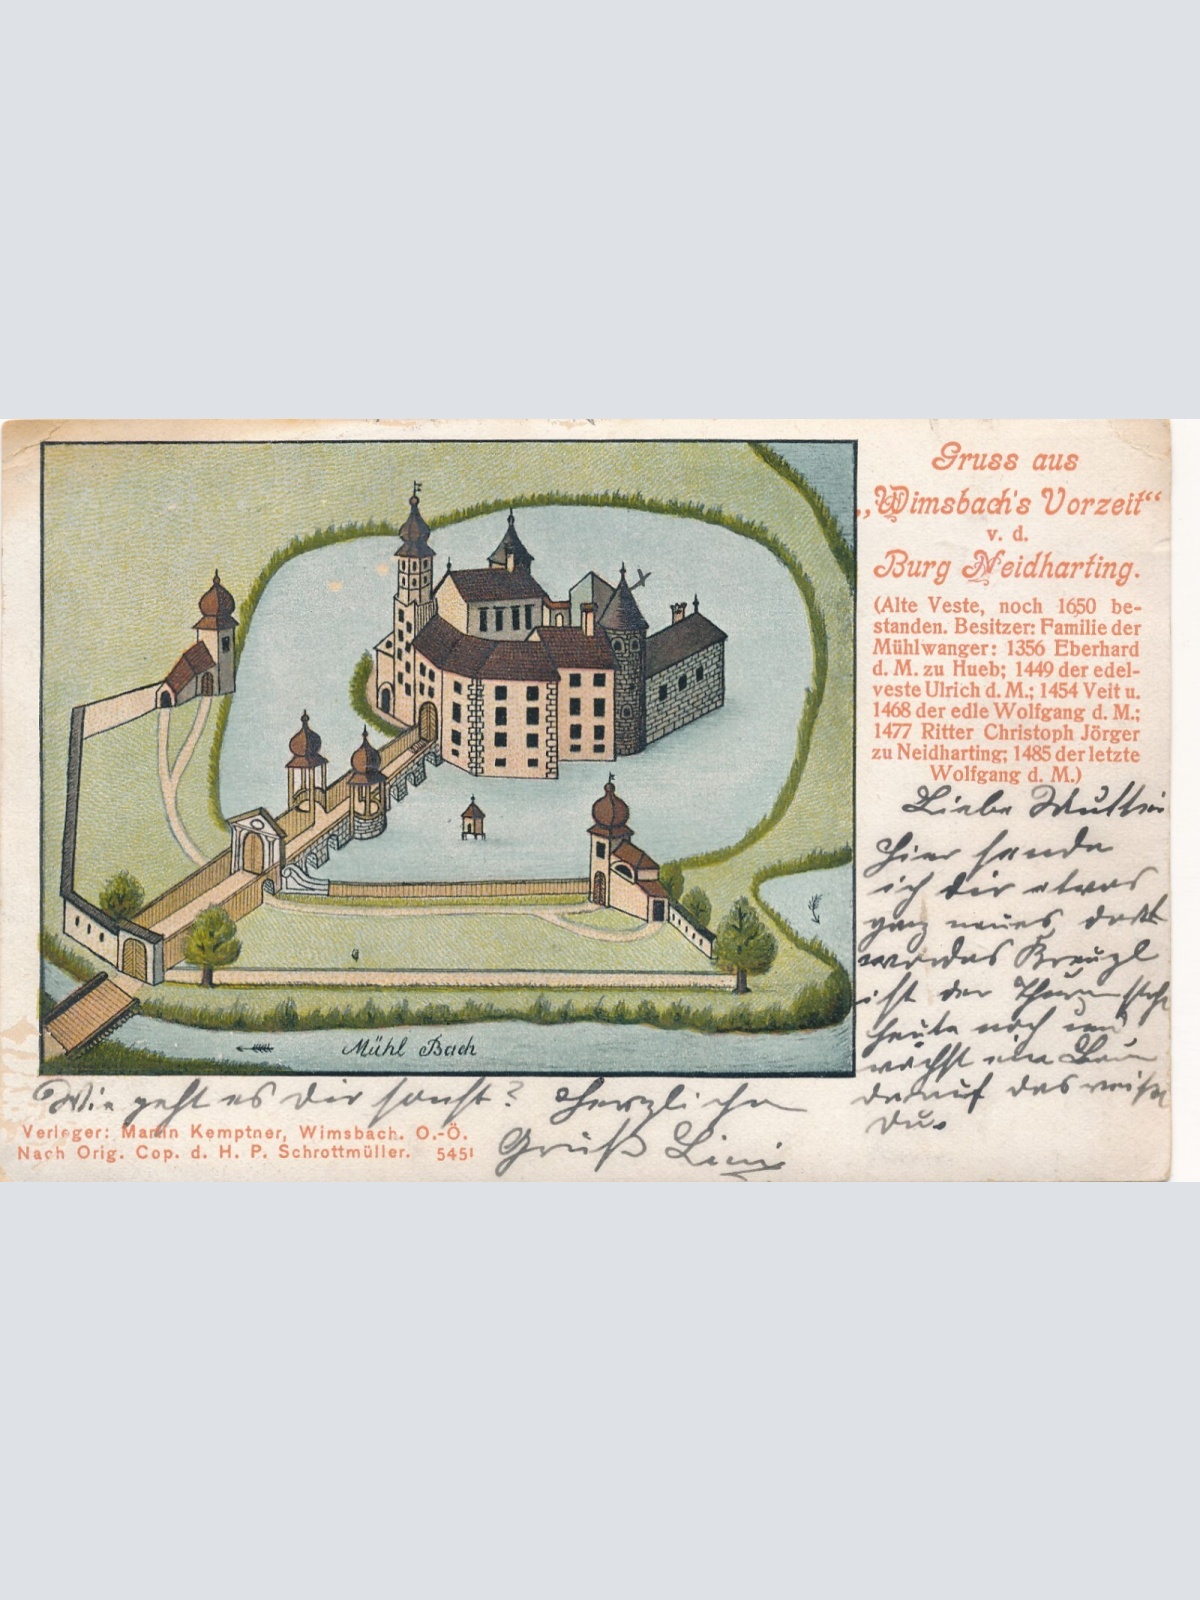 Gruss aus
„Wimsbach's Vorzeit“
v. d.
Burg Neidharting.
(Alte Veste, noch 1650 be-
standen. Besitzer: Familie der
Mühlwanger: 1356 Eberhard
d. M. zu Hueb; 1449 der edel-
veste Ulrich d. M.; 1454 Veit u.
1468 der edle Wolfgang d. M.;
1477 Ritter Christoph Jörger
zu Neidharting; 1485 der letzte
Wolfgang d. M.)
Liebe
Hier sende
ich dir etwas
ganz neues, dort
wo das Kreuzl
ist der Thurm steht
heute noch und
wächst ein Baum
darauf das weißt
Du.
Mühl Bach
Wie geht es dir sonst? Herzlichen
Gruß Lini
Verleger: Martin Kemptner, Wimsbach. O.-Ö.
Nach Orig. Cop. d. H. P. Schrottmüller. 5451